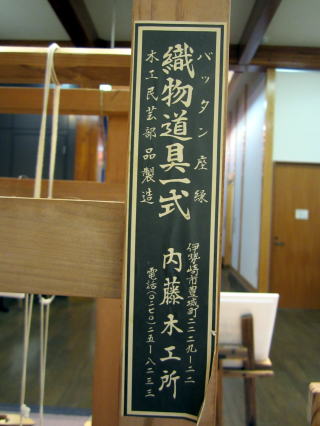 バッタン座縁
織物道具一式
木工民芸部品製造
伊勢崎市豊城町二二二九ー二二
内藤木工所
電話(〇二七〇)二五ー八二三三